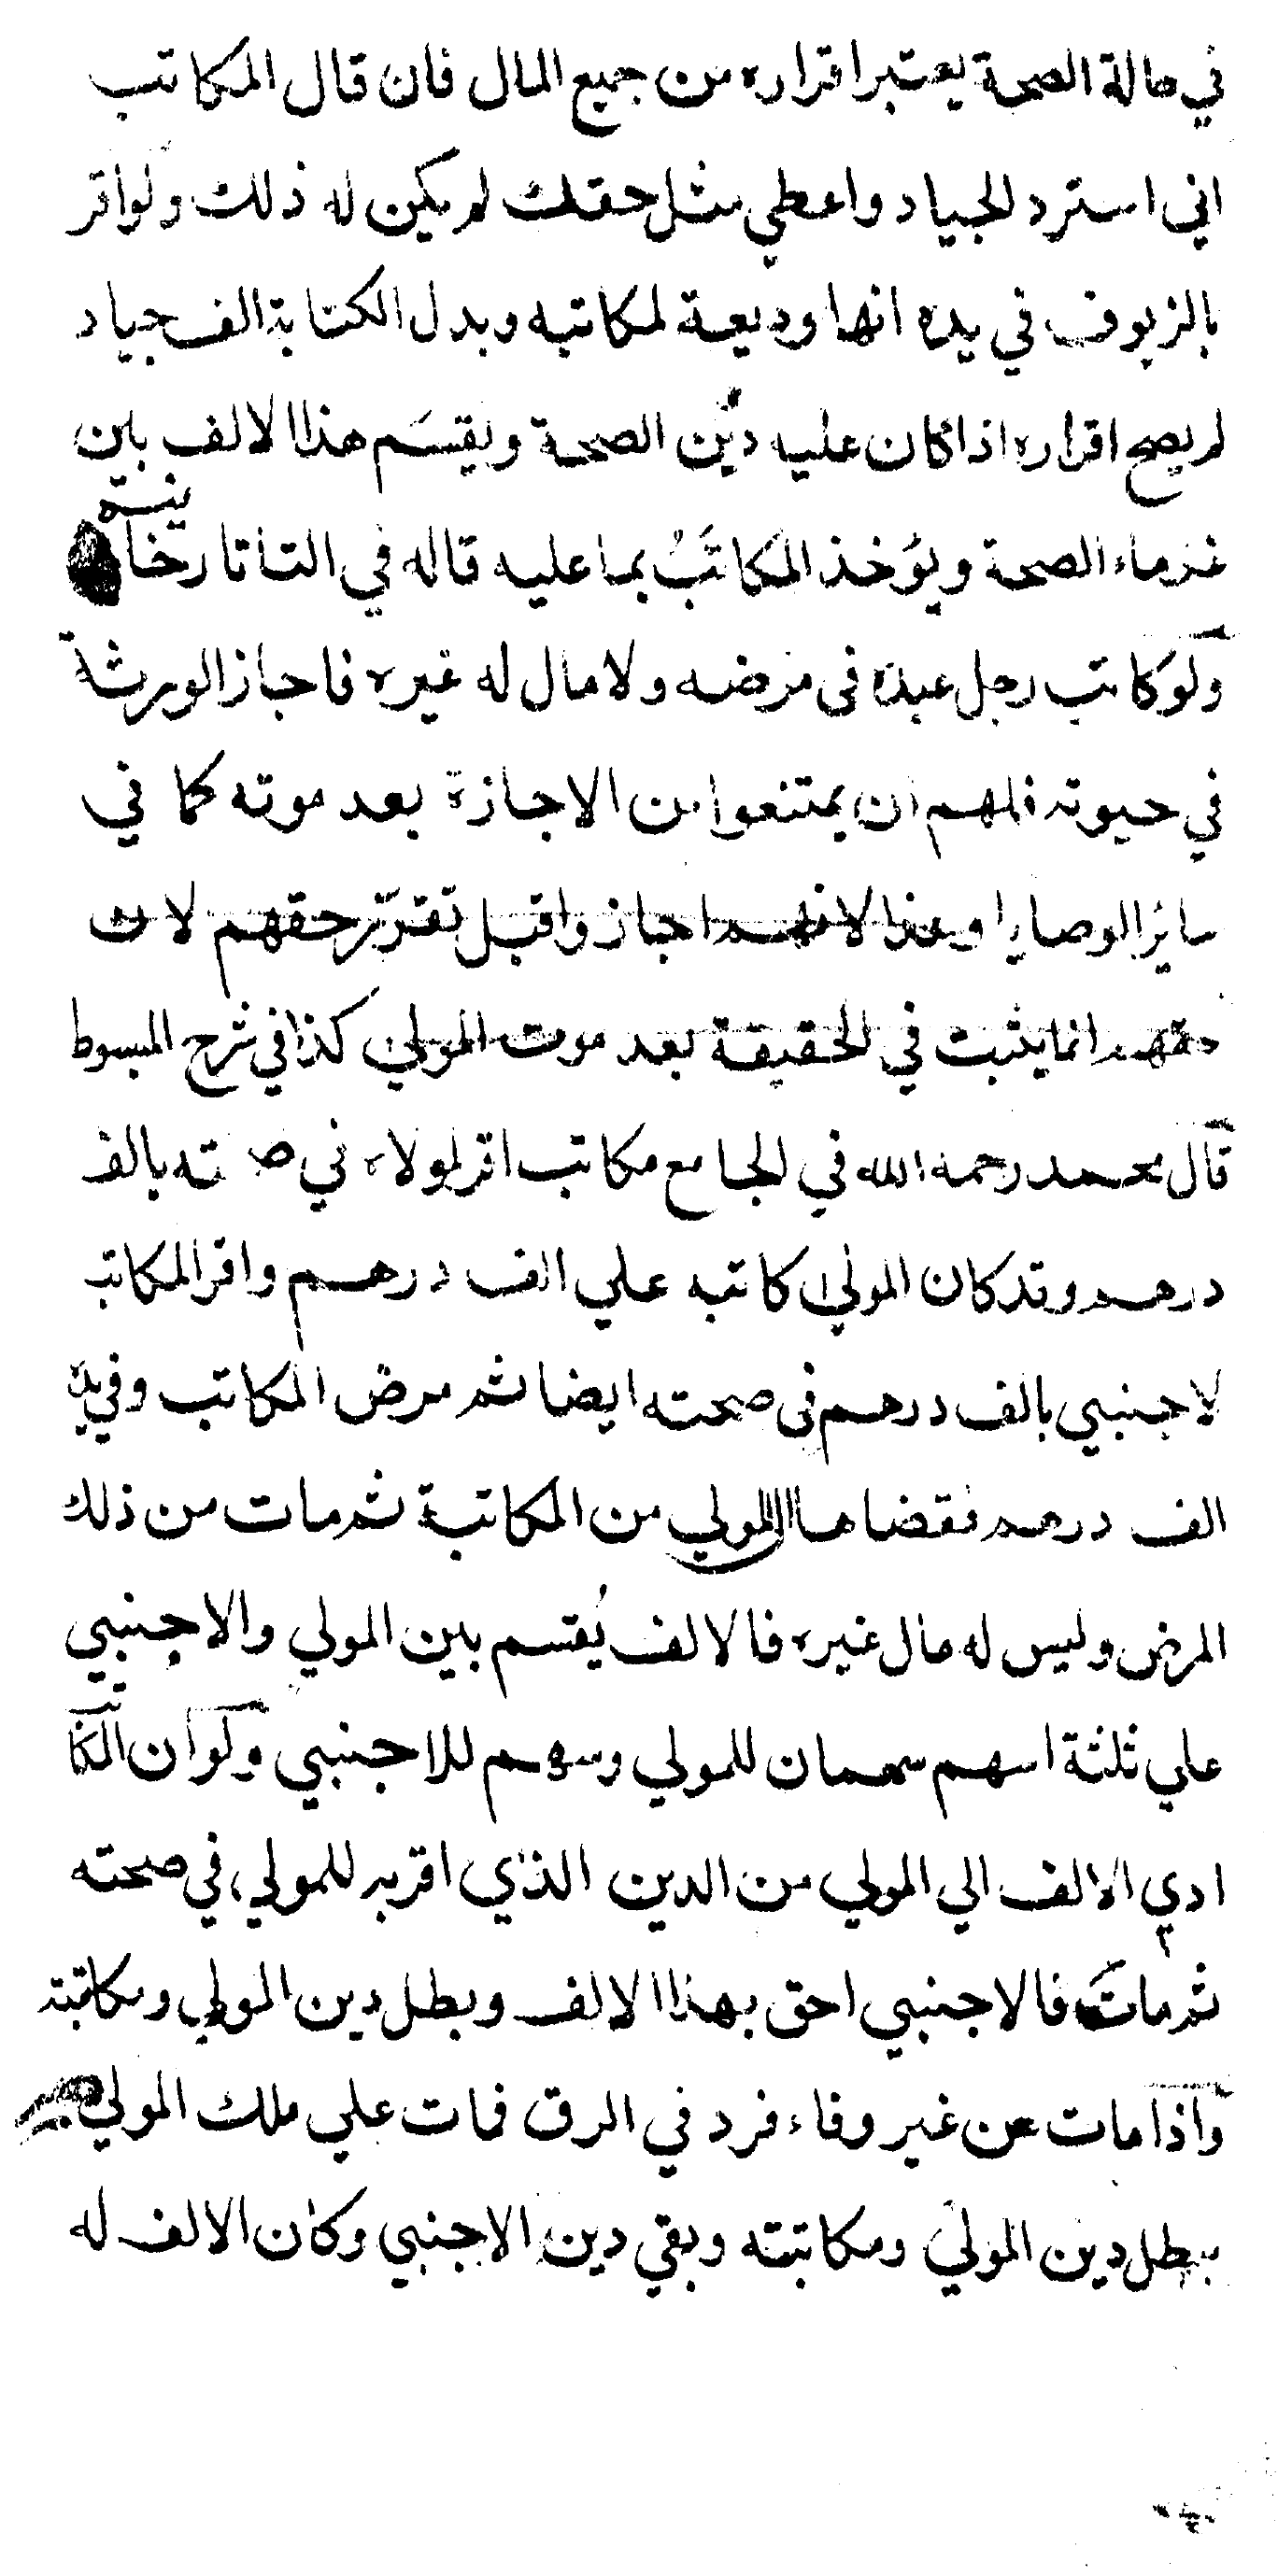 في حالة الصحة يعتبر اقراره من جميع المال فان قال المكاتب
اني استرد الجياد واعطي مثل حقك لم يكن له ذلك ولو اقر
بالزيوف في يده انها وديعة لمكاتبه وبدل الكتابة الف جياد
لم يصح اقراره اذا كان عليه دين الصحة ويقسم هذا الالف بين
غرماء الصحة ويؤخذ المكاتَبُ بما عليه قاله في التاتارخانية
ولو كاتب رجل عبده في مرضه ولا مال له غيره فاجاز الورثة
في حيوته فلهم ان يمتنعوا من الاجازة بعد موته كما في
سائر الوصايا وهذا لانهم اجازوا قبل تقرّر حقهم لان
حقهم انما يثبت في الحقيقة بعد موت المولي كذا في شرح المبسوط
قال محمد رحمه الله في الجامع مكاتب اقر لمولاه في صحته بالف
درهم وقد كان المولي كاتبه علي الف درهم واقر المكاتب
لاجنبي بالف درهم في صحته ايضا ثم مرض المكاتب وفي يده
الف درهم فقضاها المولي من المكاتبة ثم مات من ذلك
المرض وليس له مال غيره فالالف يُقسم بين المولي والاجنبي
علي ثلثة اسهم سهمان للمولي وسهم للاجنبي ولو ان المكاتب
ادي الالف الي المولي من الدين الذي اقر به للمولي في صحته
ثم مات فالاجنبي احق بهذا الالف وبطل دين المولي ومكاتبته
واذا مات عن غير وفاء فرد في الرق فمات علي ملك المولي
بطل دين المولي ومكاتبته وبقي دين الاجنبي وكان الالف له